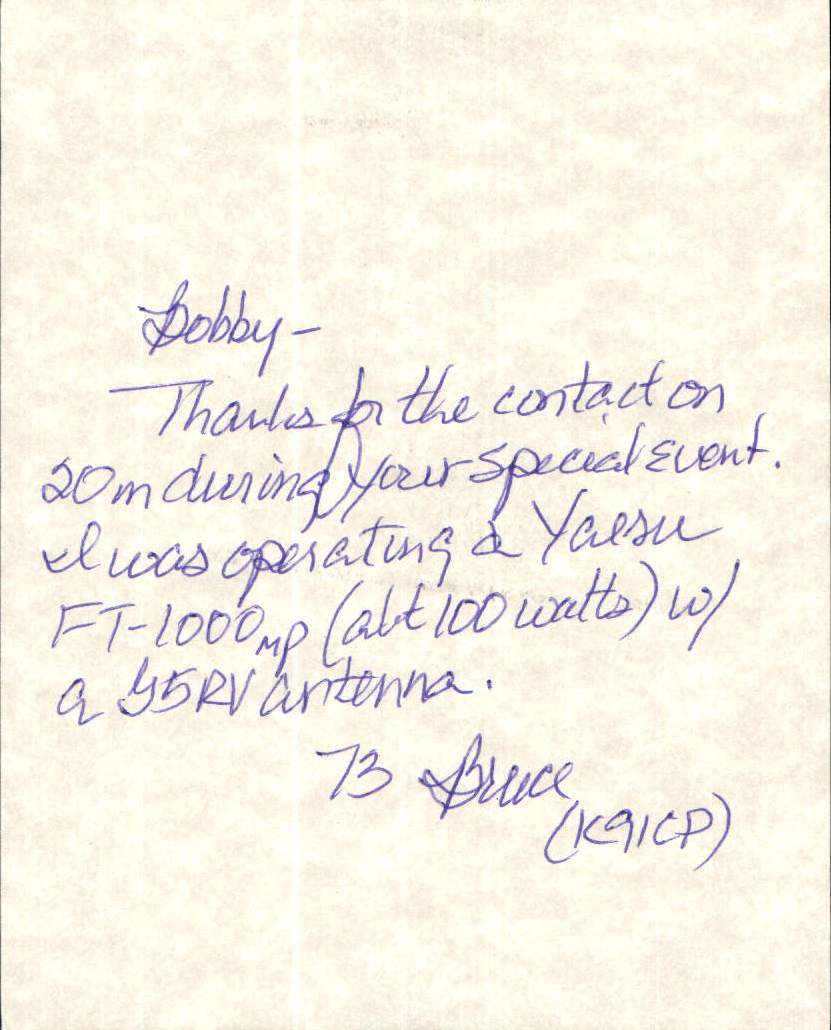 Bobby-
Thanks for the contact on
20m during your special Event.
I was operating a Yaesu
FT-1000mp (abt 100 watts) w/
a G5RV antenna.
73 Bruce
(K9ICP)